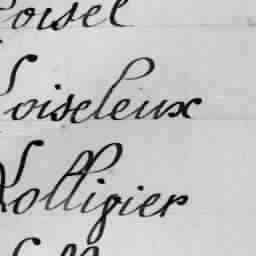 Loisel
Loiseleux
Lolligier